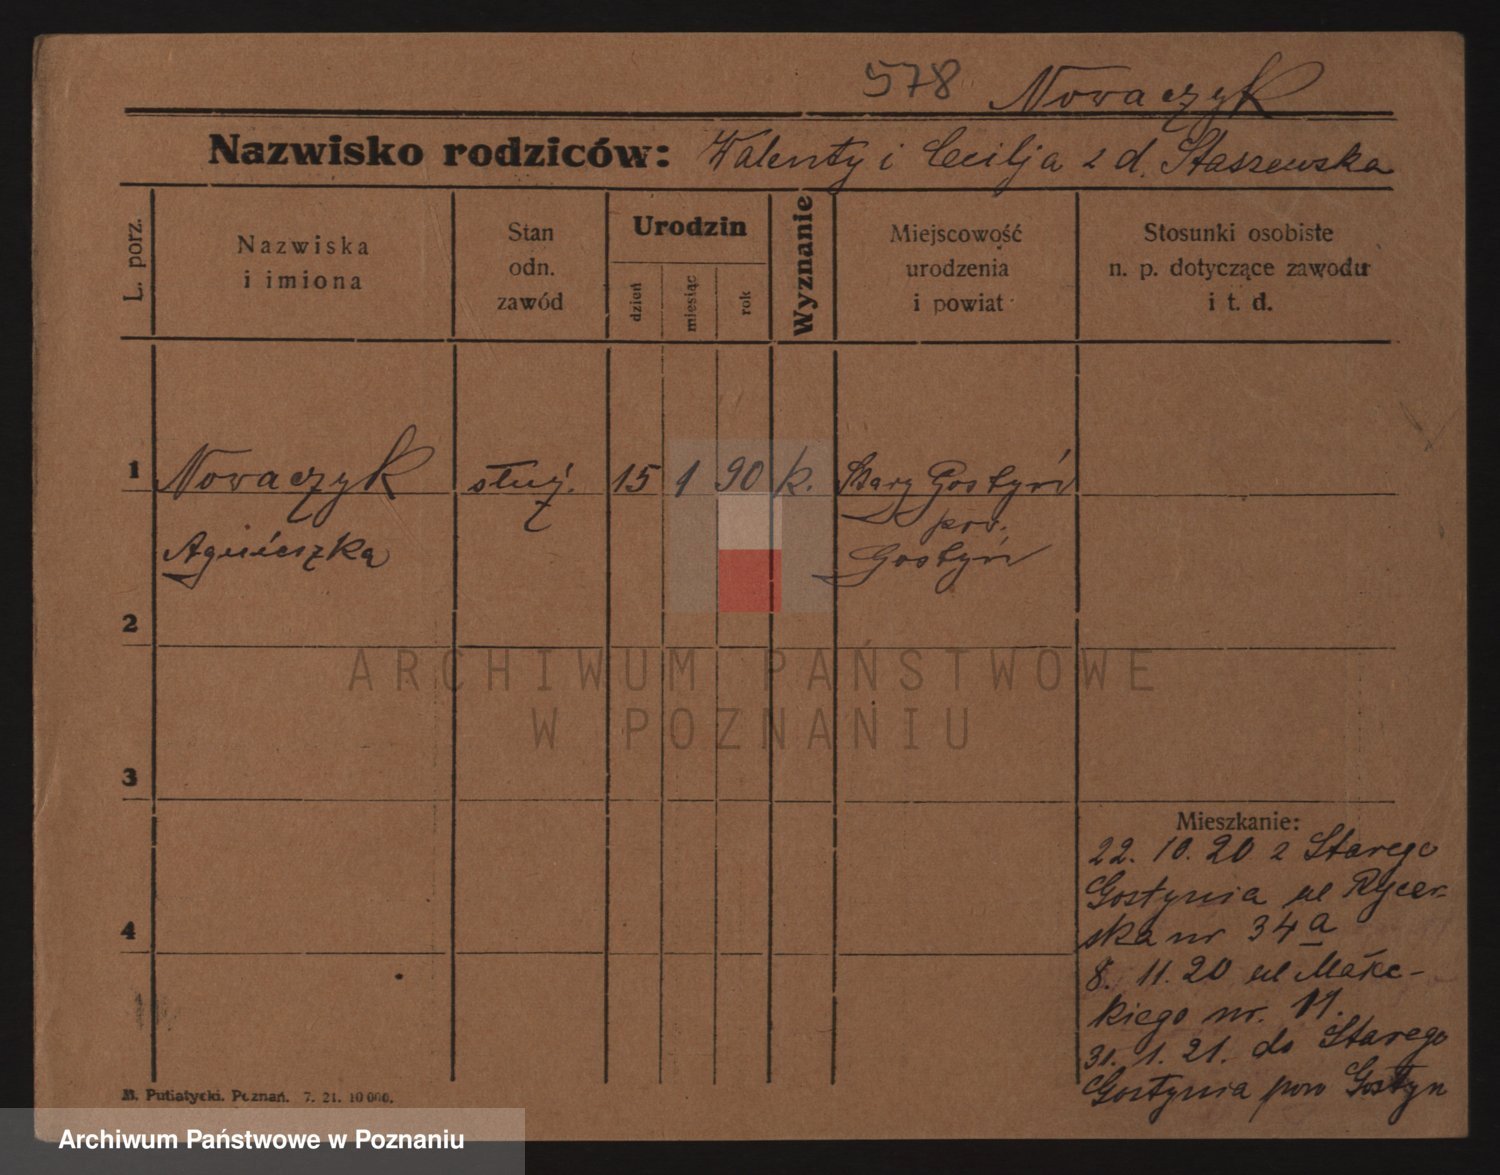 578 Nowaczyk
Nazwisko rodziców: Walenty i Cecilja z d. Staszewska
L. porz.
Nazwiska
i imiona
Stan
odn.
zawód
Urodzin
dzień
miesiąc
rok
Wyznanie
Miejscowość
urodzenia
i powiat
Stosunki osobiste
n. p. dotyczące zawodu
i t. d.
1 Nowaczyk służ. 15 1 90 k. Stary Gostyń
pow.
Agnieszka Gostyń
2
3
4
Mieszkanie:
22. 10. 20 z Starego
Gostynia ul Rycer-
ska nr 34a
8. 11. 20 ul
kiego nr.
31. 1. 21. do Starego
Gostynia pow Gostyn
M. Putiatycki. Poznań. 7. 21. 10 000.
ARCHIWUM PAŃSTWOWE
W POZNANIU
Archiwum Państwowe w Poznaniu